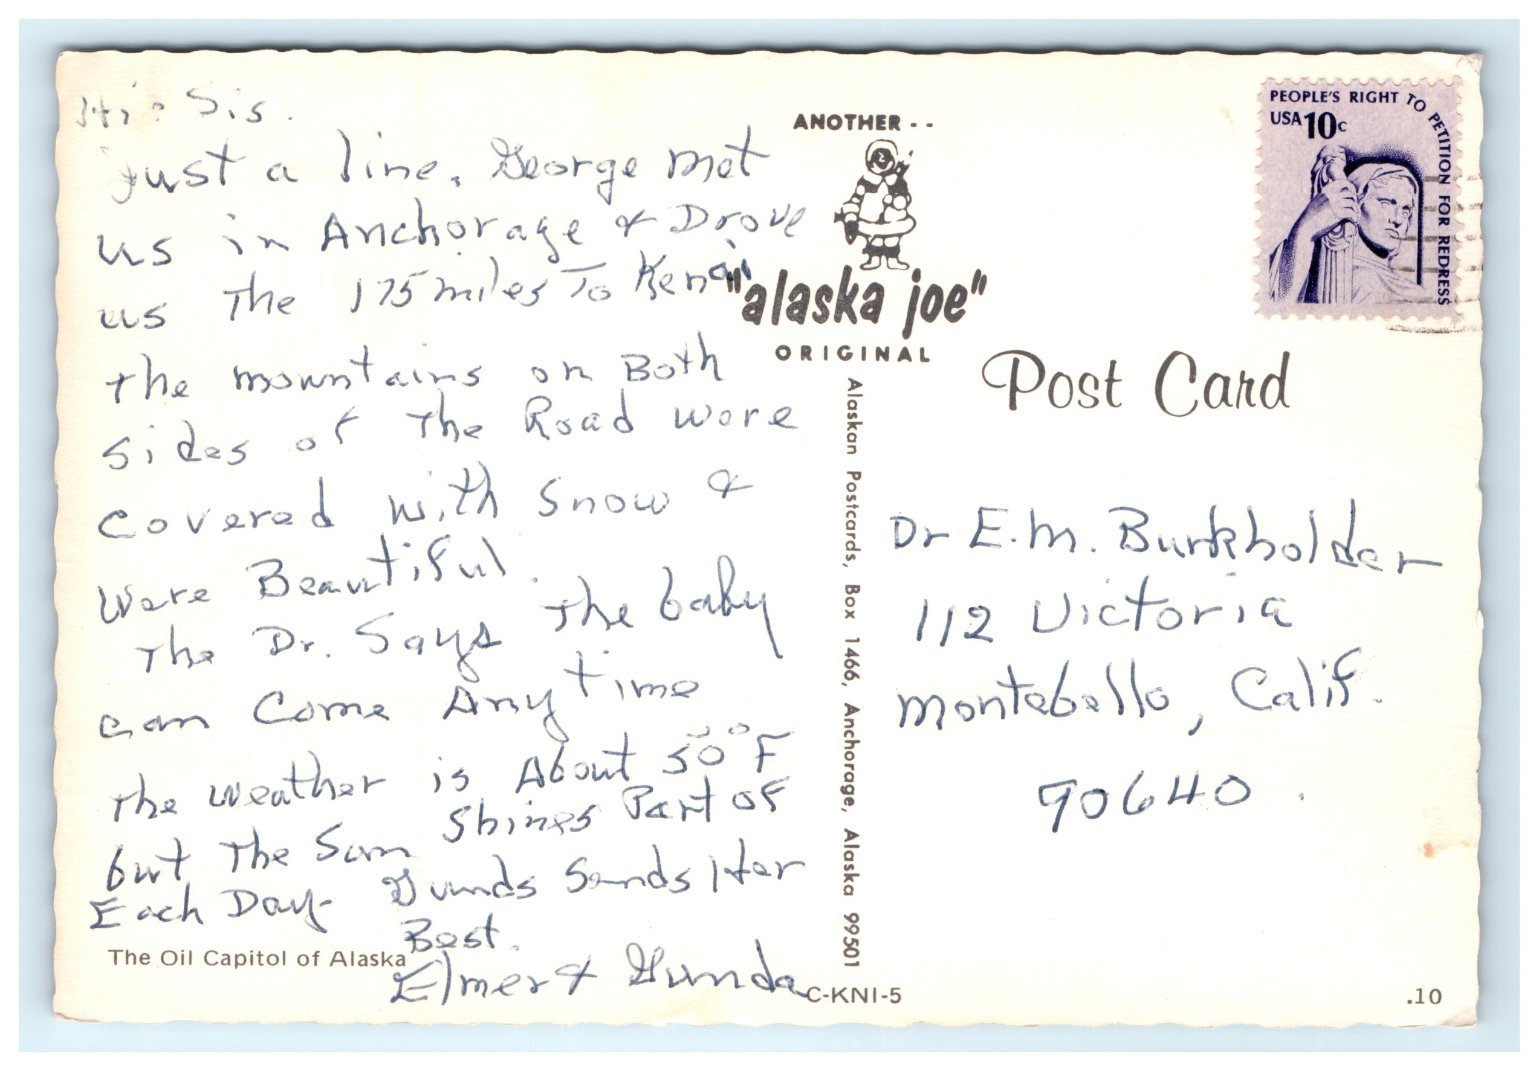 Hi: Sis.
just a line. George met
us in Anchorage & Drove
us The 175 miles To Kenai
the mountains on Both
sides of The Road were
covered with snow &
Were Beautiful.
The Dr. Says The baby
can Come Any time
The weather is About 50° F
but The Sun Shines Part of
Each Day. Gunda Sends Her
Best.
Elmer & Gunda
The Oil Capitol of Alaska
ANOTHER--
"alaska joe"
ORIGINAL
Alaskan Postcards, Box 1466, Anchorage, Alaska 99501
C-KNI-5
PEOPLE'S RIGHT TO PETITION FOR REDRESS
USA 10c
Post Card
Dr E. M. Burkholder
112 Victoria
Montebello, Calif.
90640.
.10